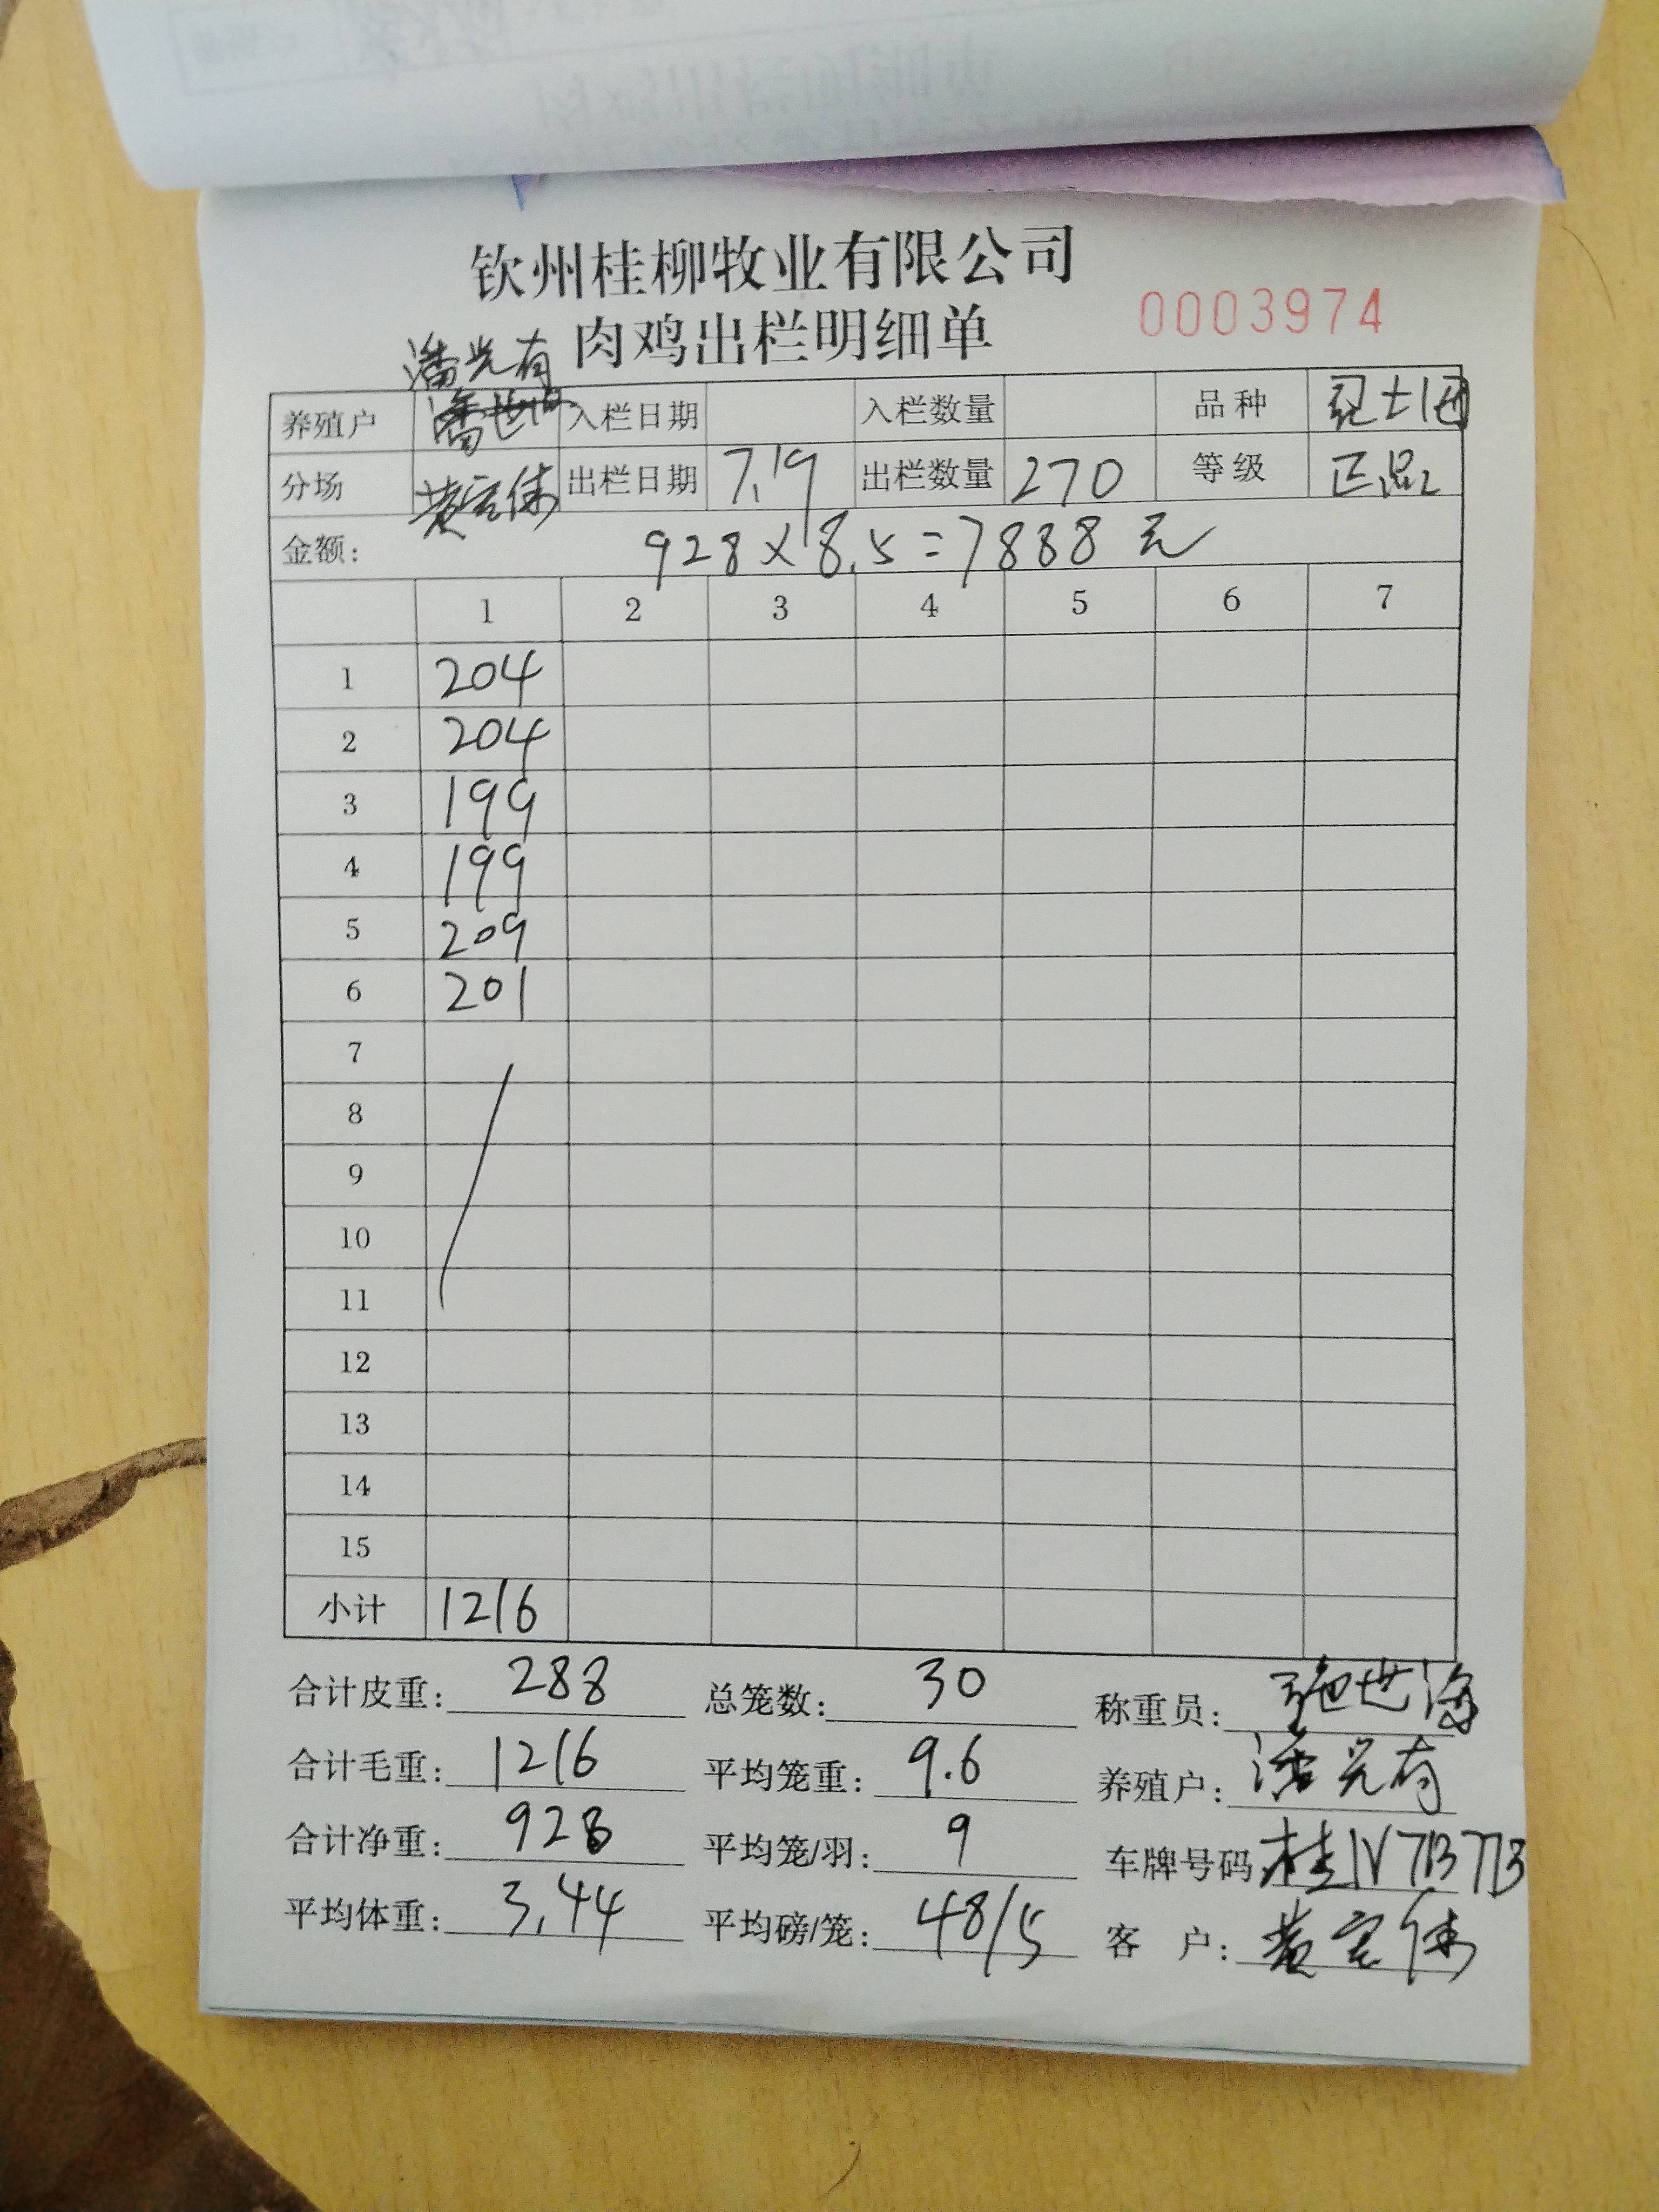 钦州桂柳牧业有限公司
肉鸡出栏明细单 0003974
潘光有
养殖户 入栏日期 入栏数量 品种
分场 黄宝伟 出栏日期 7.19 出栏数量 270 等级 正品
金额: 928×8.5=7888元
1 2 3 4 5 6 7
1 204
2 204
3 199
4 199
5 209
6 201
7
8
9
10
11
12
13
14
15
小计 1216
合计皮重: 288 总笼数: 30 称重员: 世海
合计毛重: 1216 平均笼重: 9.6 养殖户: 潘光有
合计净重: 928 平均笼/羽: 9 车牌号码: 桂
平均体重: 3.44 平均磅/笼: 48/5 客户: 黄宝伟